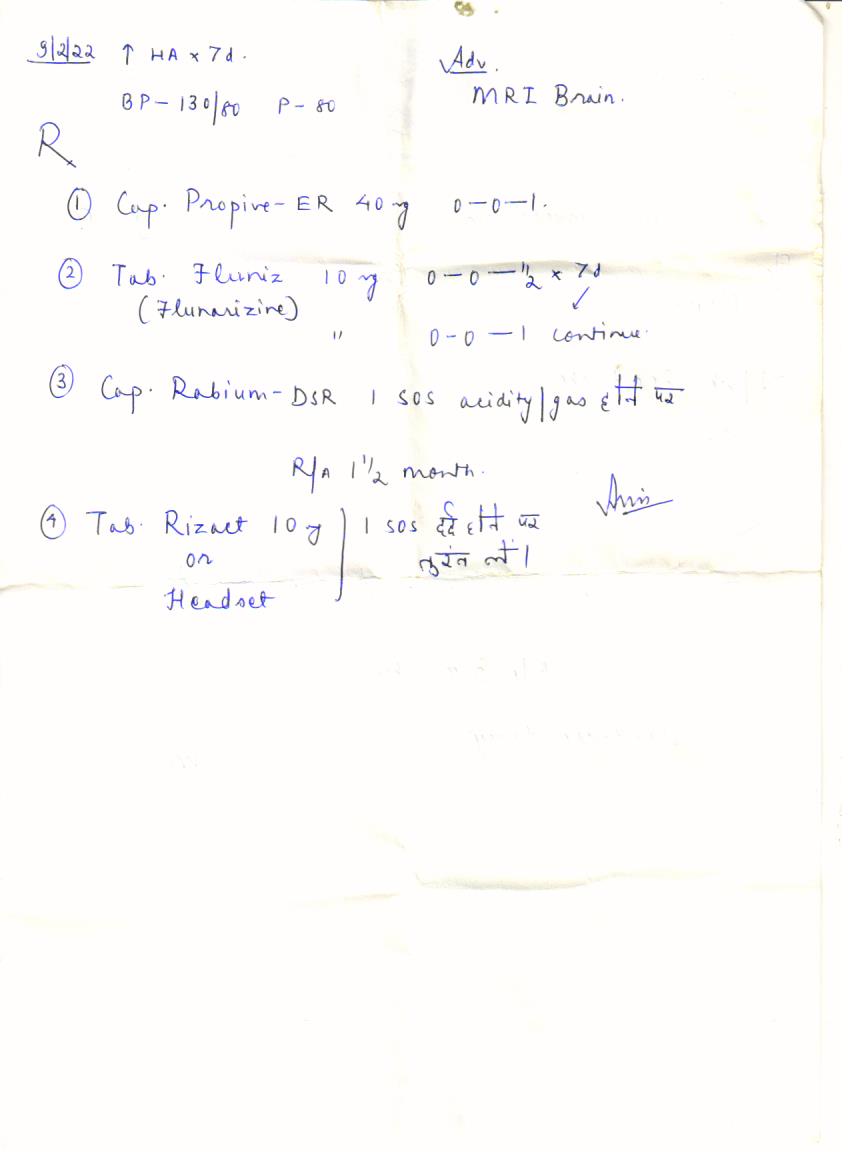 9/2/22 ↑ HA × 7d.
Adv.
BP - 130/80 P - 80
MRI Brain.
Rx
① Cap. Propive-ER 40 mg 0-0-1.
② Tab. Fluniz 10 mg 0-0-1/2 × 7d
(Flunarizine)
" 0-0-1 continue.
③ Cap. Rabium-DSR 1 sos acidity/gas होने पर
R/A 1 1/2 month.
④ Tab. Rizact 10 mg 1 sos दर्द होने पर
or तुरंत लें।
Headset